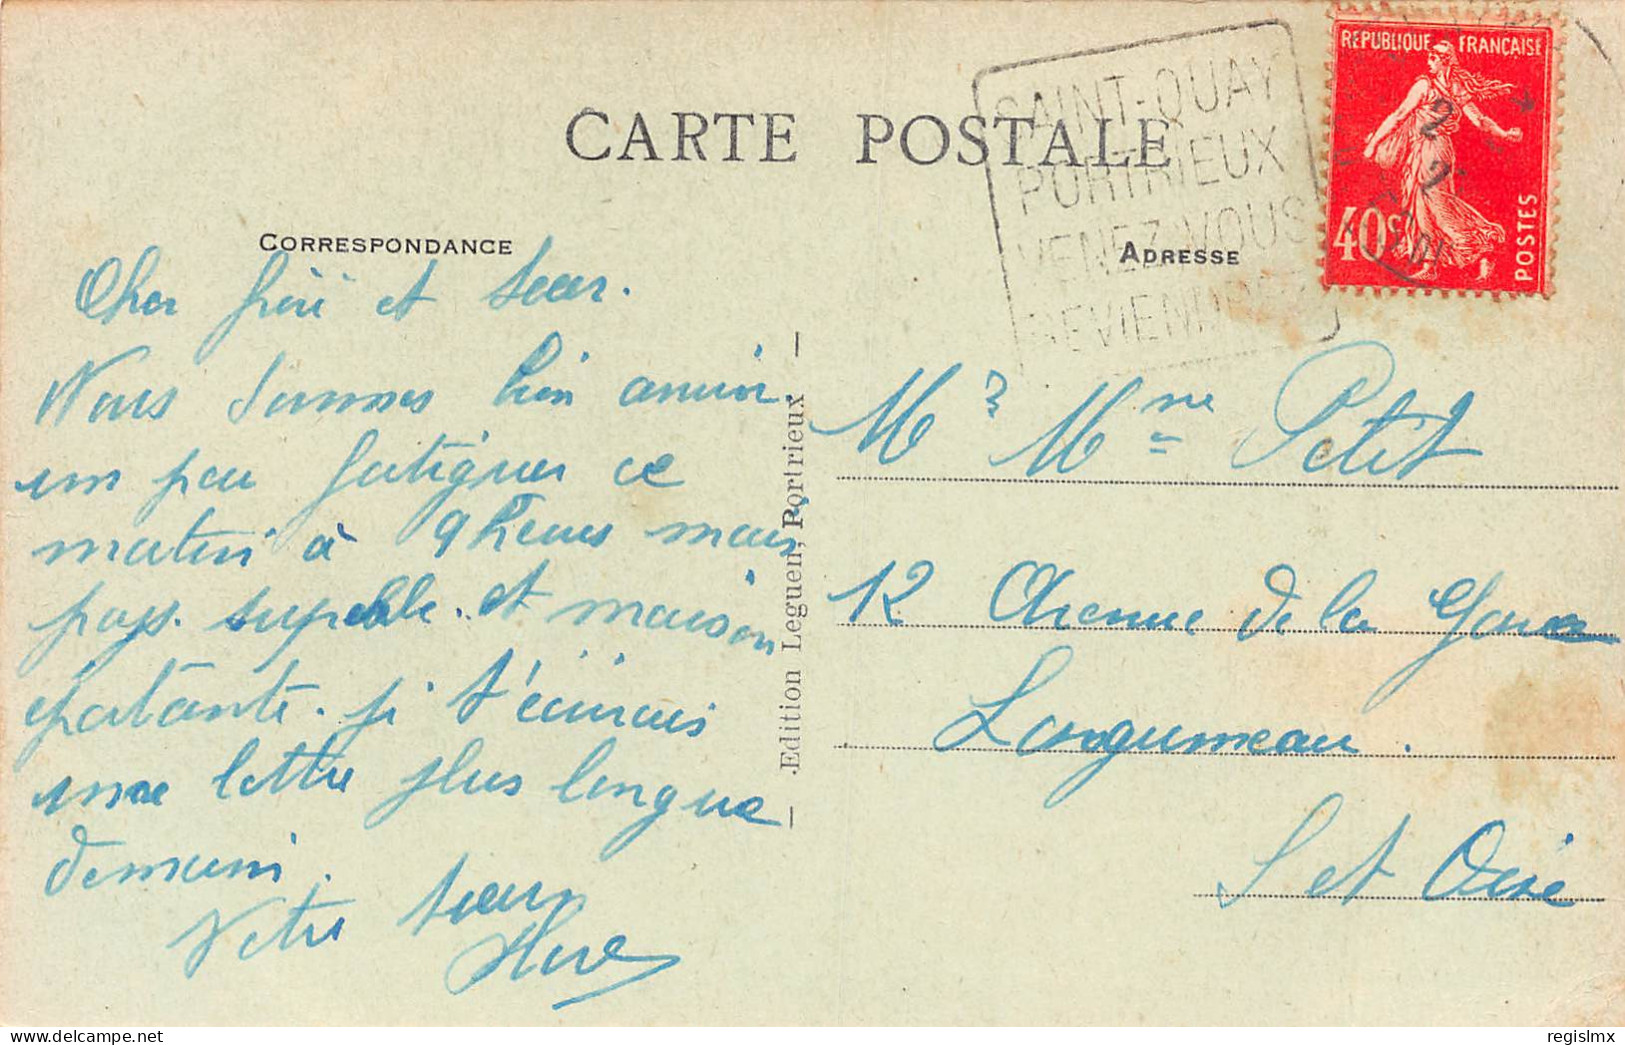 CARTE POSTALE
CORRESPONDANCE
Cher frère et soeur.
Nous sommes bien arrivé.
un peu fatiguer ce
matin à 9 heures mais
pays superbe. et maison
épatante. je t'écrirais
une lettre plus longue
demain.
Votre soeur
Edition Leguen, Portrieux
SAINT-QUAY
PORTRIEUX
VENEZ VOUS
REVIENDREZ
REPUBLIQUE FRANÇAISE
40c
POSTES
ADRESSE
M et Mme Petit
12 Avenue de la Gare
Longjumeau.
S et Oise
regislmx